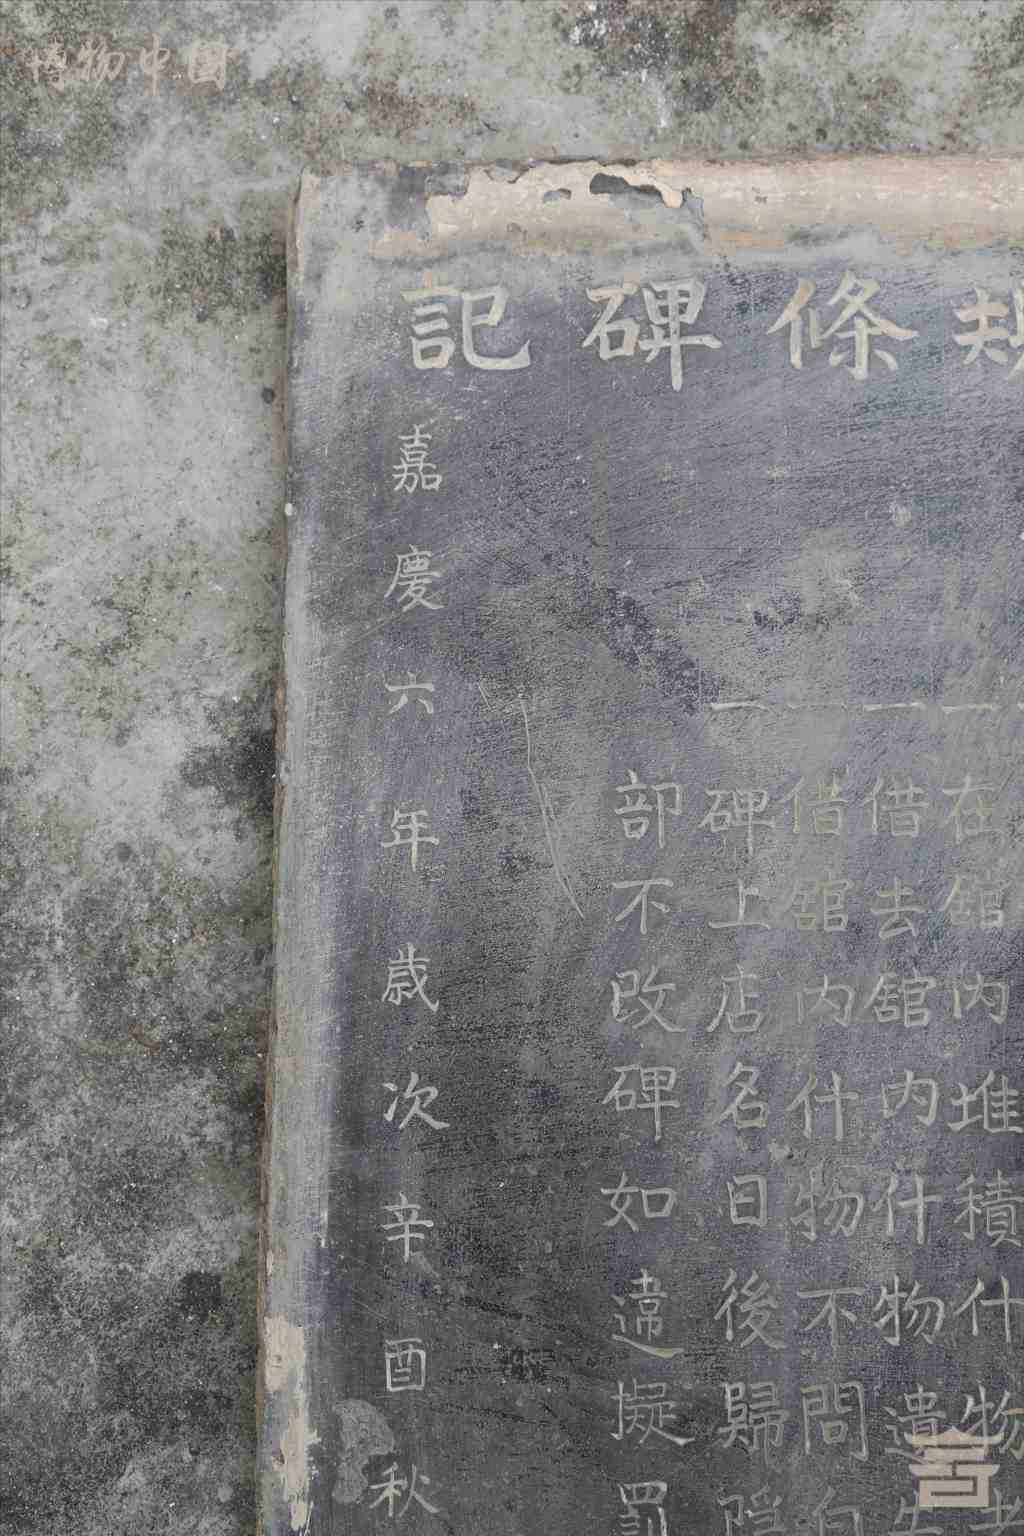 博物中國
規條碑記
一在舘內堆積什物
一借去舘內什物遺失
一借舘內什物不問
一碑上店名日後歸
部不改碑如違擬罰
嘉慶六年歲次辛酉秋